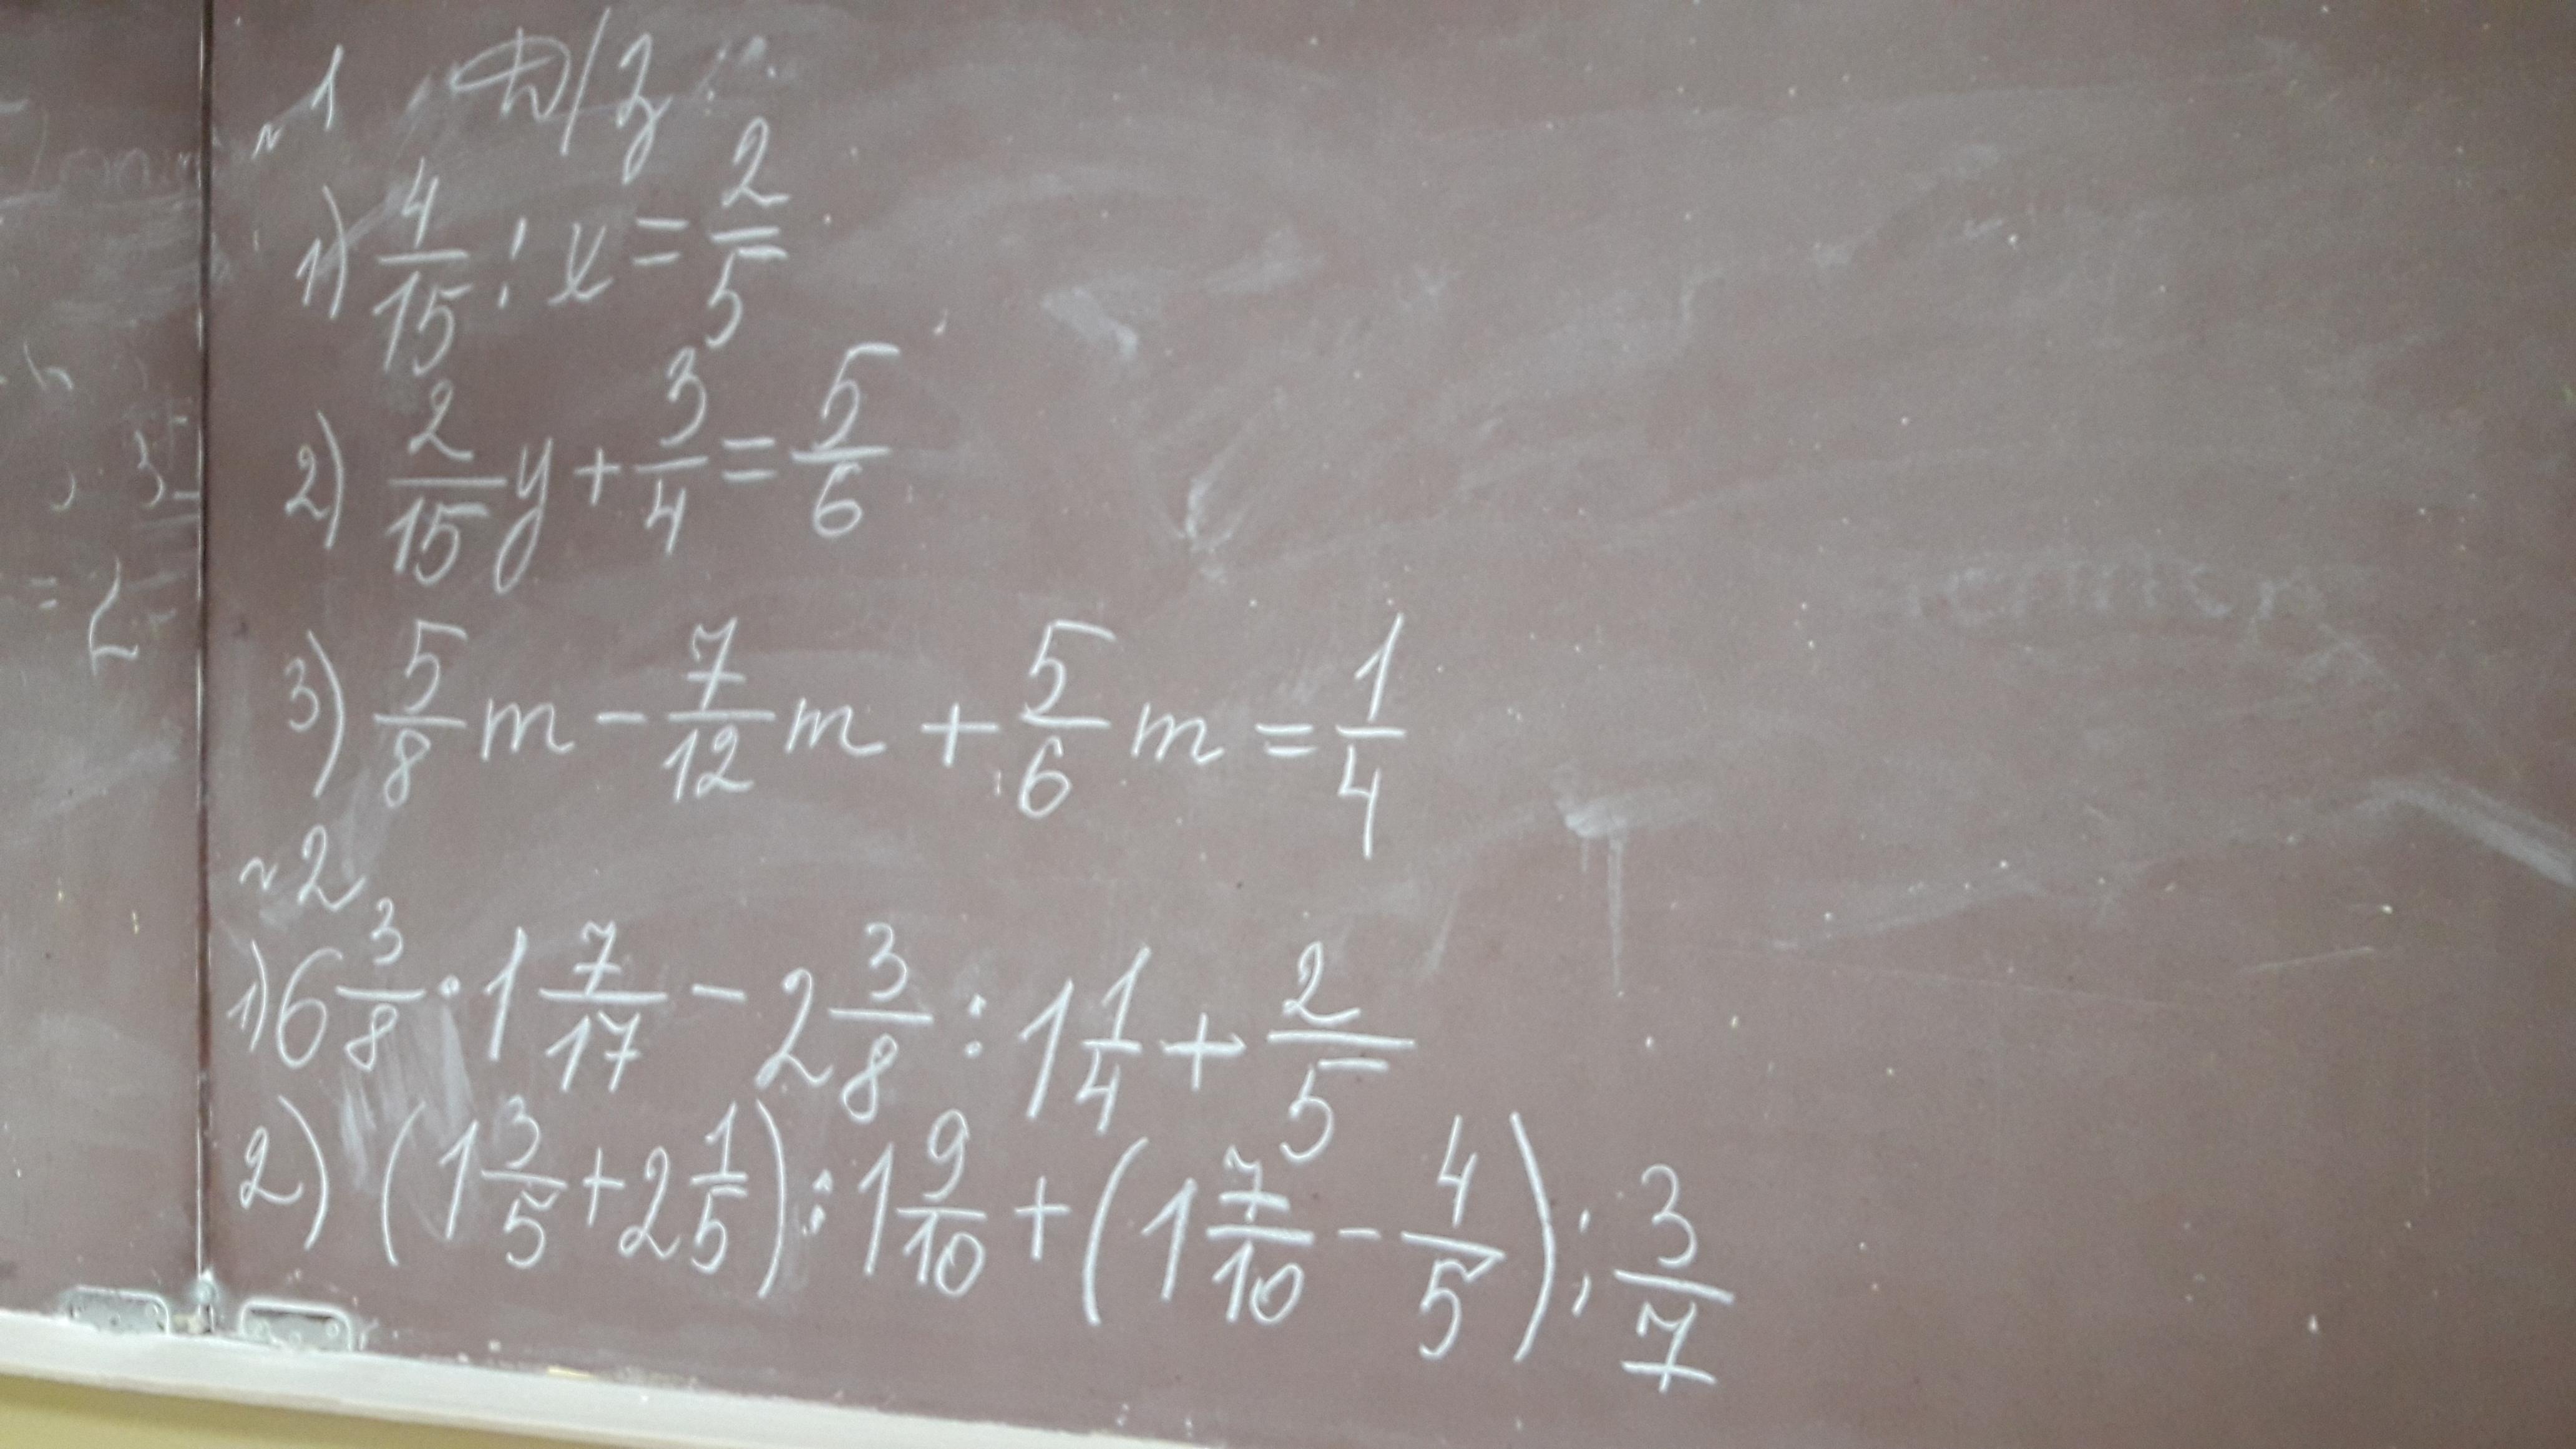 Д/З:
№1
1) 4/15 : x = 2/5
2) 2/15 y + 3/4 = 5/6
3) 5/8 m - 7/12 m + 5/6 m = 1/4
№2
1) 6 3/8 · 1 7/17 - 2 3/8 : 1 1/4 + 2/5
2) (1 3/5 + 2 1/5) : 1 9/10 + (1 7/10 - 4/5) : 3/7